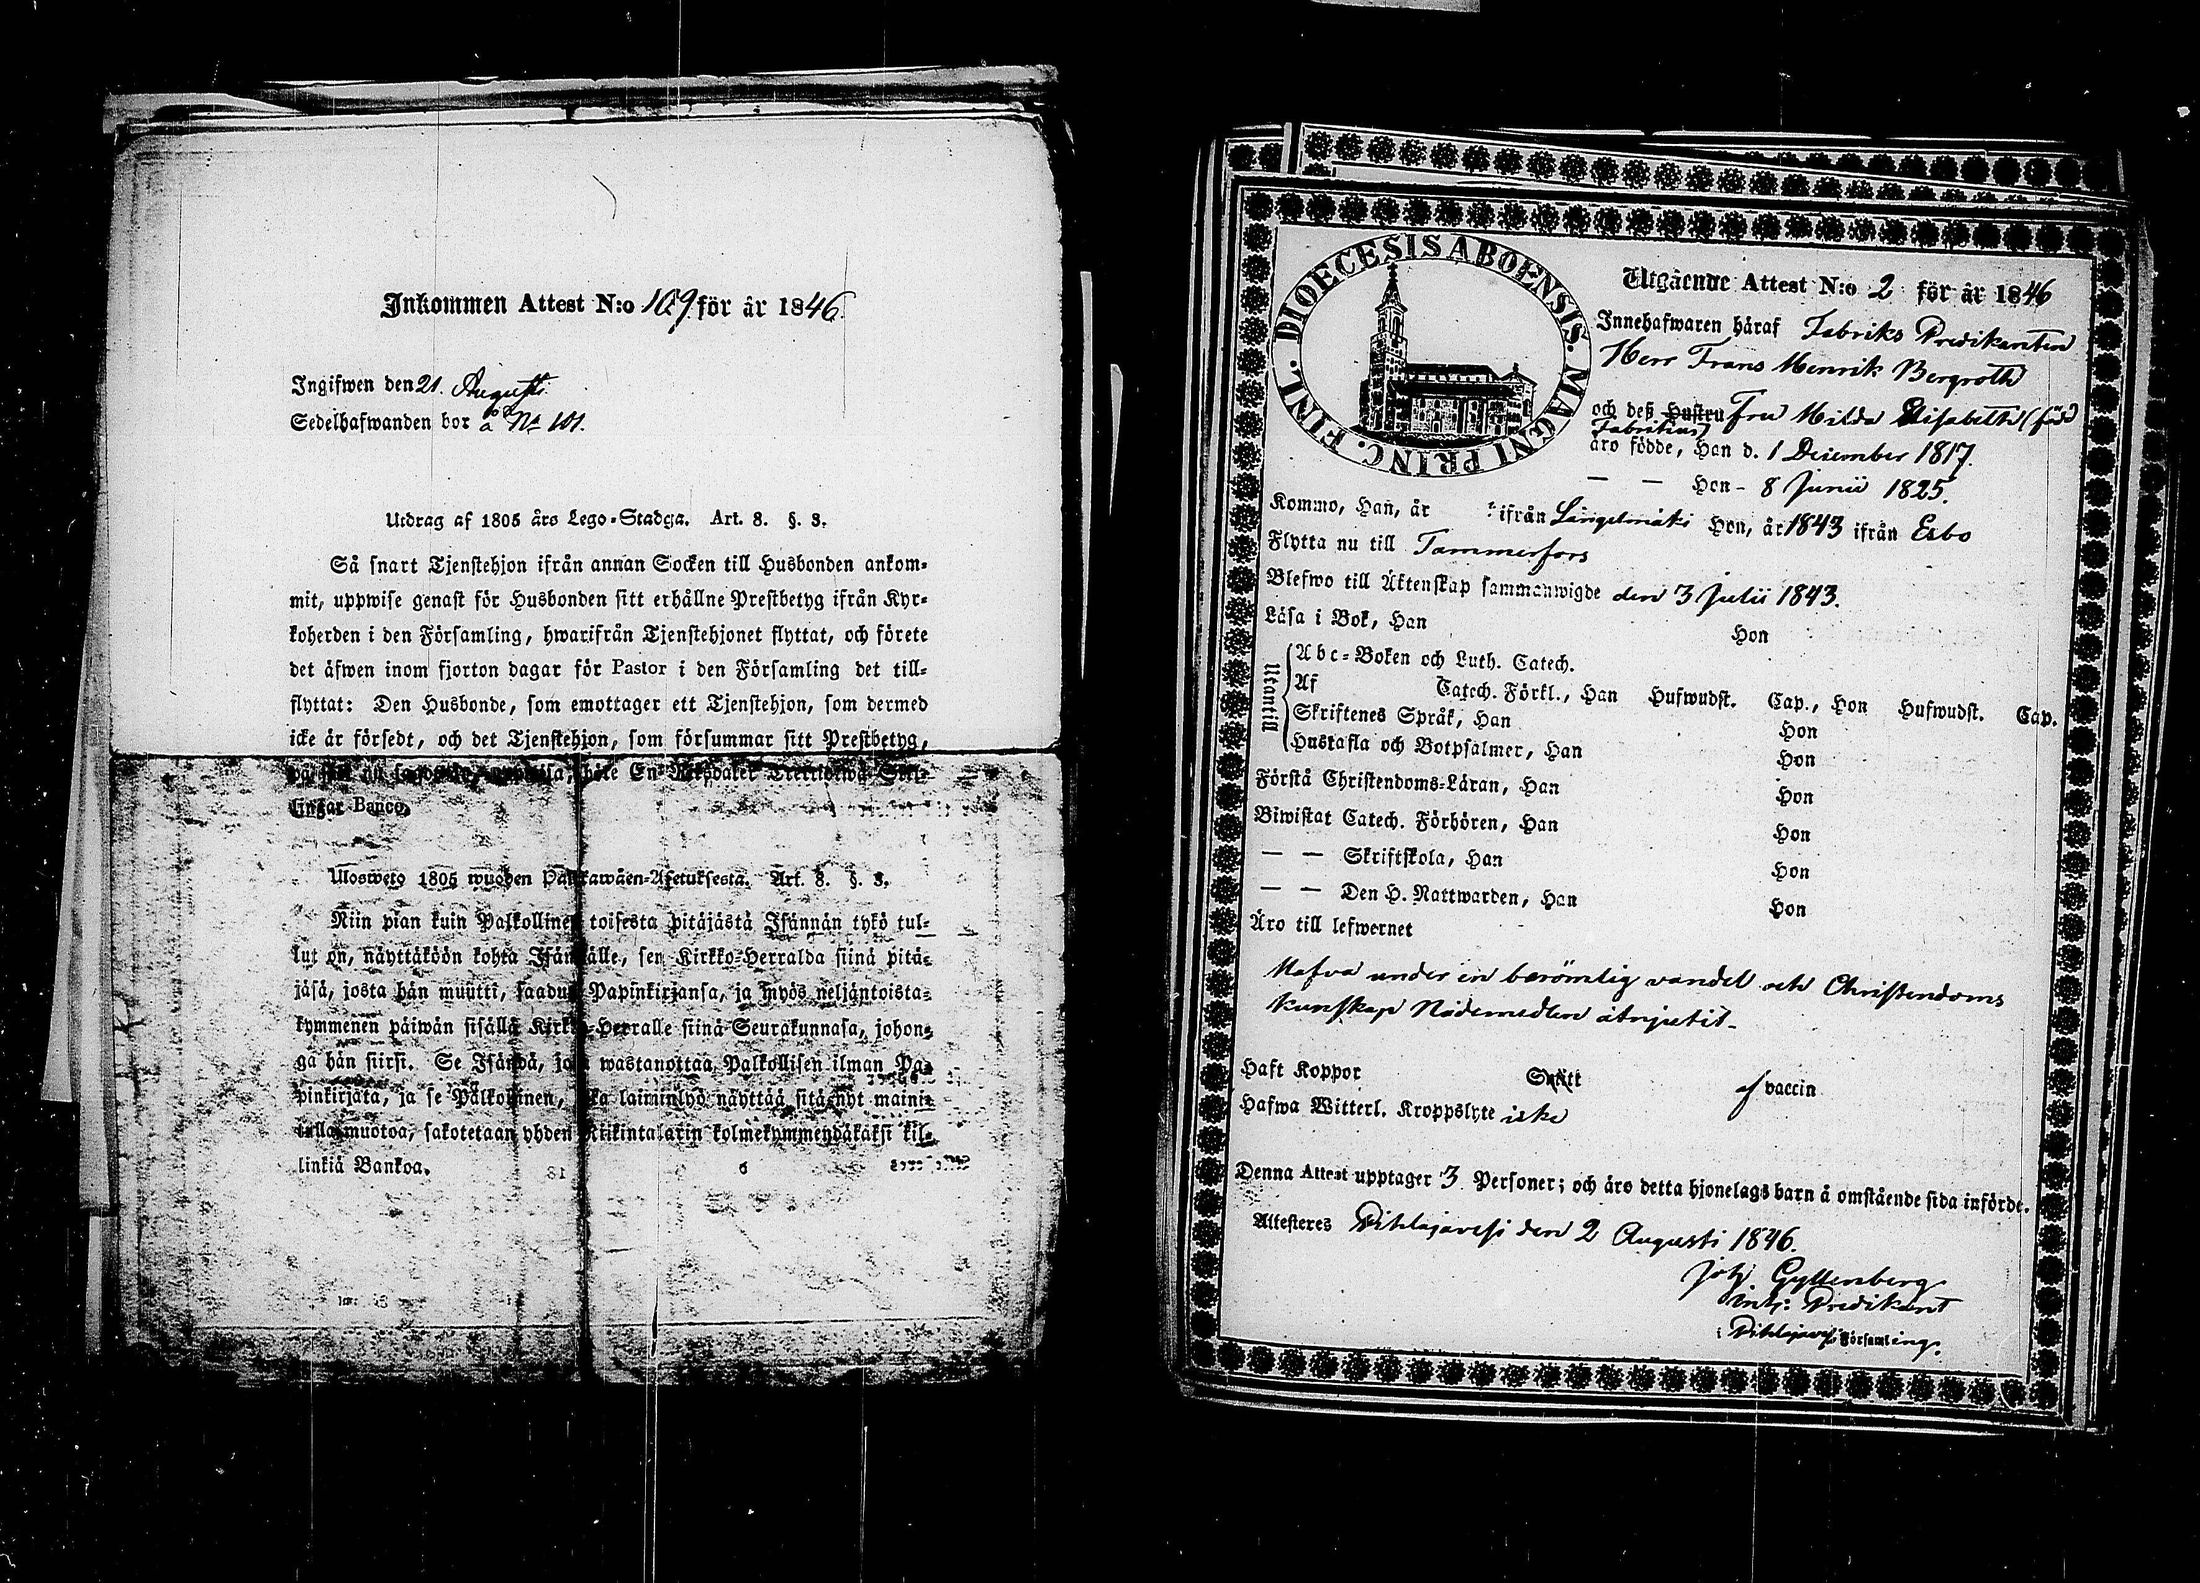 Inkommen Attest N:o 109 för år 1846.
Ingifwen den 21. Augusti.
Sedelhafwanden bor å No 101.
Utdrag af 1805 års Lego-Stadga. Art. 8. §. 3.
Så snart Tjenstehjon ifrån annan Socken till Husbonden ankom-
mit, uppwise genast för Husbonden sitt erhållne Prestbetyg ifrån Kyr-
koherden i den Församling, hwarifrån Tjenstehjonet flyttat, och förete
det äfwen inom fjorton dagar för Pastor i den Församling det till-
flyttat: Den Husbonde, som emottager ett Tjenstehjon, som dermed
icke är försedt, och det Tjenstehjon, som försummar sitt Prestbetyg,
böte En Riksdaler Trettiotwå Skil-
lingar Banco.
Ulosweto 1805 wuoden Palkawäen-Asetuksesta. Art. 8. §. 3.
Niin pian kuin Palkollinen toisesta pitäjästä Isännän tykö tul-
lut on, näyttäköön kohta Isännälle, sen Kirkko-Herralda siinä pitä-
jäsä, josta hän muutti, saadun Papinkirjansa, ja myös neljäntoista-
kymmenen päiwän sisällä Kirkko-Herralle siinä Seurakunnasa, johon-
ga hän siirsi. Se Isändä, joka wastanottaa Palkollisen ilman Pa-
pinkirjata, ja se Palkollinen, joka laiminlyö näyttää sitä nyt maini-
tulla muotoa, sakotetaan yhden Riikintalarin kolmekymmendäkaksi kil-
linkiä Bankoa.
DIOECESIS ABOENSIS. MAGNI PRINC. FINL.
Utgående Attest N:o 2 för år 1846
Innehafwaren häraf Fabriks Predikanten
Herr Frans Henrik Bergroth
och deß Hustru Fru Hilda Elisabeth (född
Fabritius)
äro födde, Han d. 1 December 1817.
— — Hon - 8 Junii 1825.
Kommo, Han, år ifrån Längelmäki Hon, år 1843 ifrån Esbo
Flytta nu till Tammerfors
Blefwo till Äktenskap sammanwigde den 3 Julii 1843.
Läsa i Bok, Han Hon
Utantill
Abc-Boken och Luth. Catech.
Af Catech. Förkl., Han Hufwudst. Cap., Hon Hufwudst. Cap.
Skriftenes Språk, Han Hon
Hustafla och Botpsalmer, Han Hon
Förstå Christendoms-Läran, Han Hon
Biwistat Catech. Förhören, Han Hon
— — Skriftskola, Han Hon
— — Den H. Nattwarden, Han Hon
Äro till lefwernet
Hafva under en berömlig vandel och Christendoms
kunskap Nådemedlen åtnjutit.
Haft Koppor af vaccin
Hafwa Witterl. Kroppslyte icke
Denna Attest upptager 3 Personer; och äro detta hjonelags barn å omstående sida införde.
Attesteres Pihlajavesi den 2 Augusti 1846.
Joh. Gyllenberg
Predikant
i Pihlajavesi Församling.